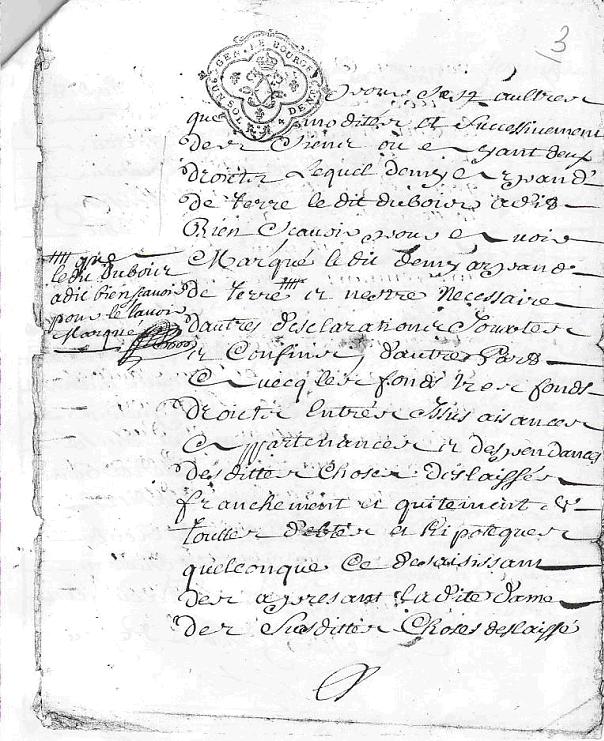 3
GEN. DE BOURGES
UN SOL
pour et aultres
que moditte et Successivement
des Siens ou eyant deux
droicts Lequel demy arpand
de Terre le dit dubois a dis
Bien Scavoir pour e voir
Marqué le dit demy arpand
de Terre et nestre Necessaire
d'autres desclarations Joustes
et Confins d'autre Pars
Avecq les fonds tres fonds
droicts Entrés Issus aisances
Appartenances et despendances
desdittes Choses deslaissés
franchement et quitement de
Touttes debtes et hipoteques
quelconque Ce desaisissant
des apresant Ladite dame
des Susdittes Choses deslaissé
que
le dit Dubois
a dit bien scavoir
pour le lavoir
Marqué